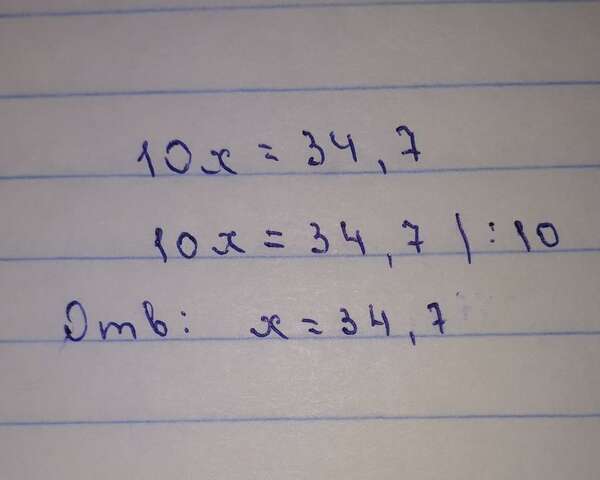 10x = 34,7
10x = 34,7 | : 10
Отв: x = 34,7